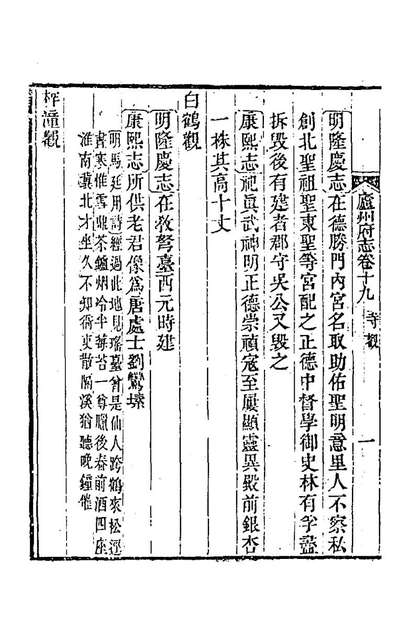 廬州府志卷十九 寺觀 一
明隆慶志在德勝門內宮名取助佑聖明意里人不察私
創北聖祖聖東聖等宮配之正德中督學御史林有孚盡
拆毀後有建者郡守吳公又毀之
康熙志祀眞武神明正德崇禎寇至屢顯靈異殿前銀杏
一株其高十丈
白鶴觀
明隆慶志在教弩臺西元時建
康熙志所供老君像爲唐處士劉鸞塑
明馬廷用詩經過此地見瑤臺曾是仙人跨鶴來松逕
書寒惟雪鼎茶鑪烟冷半莓苔一尊臘後春前酒四座
淮南冀北才坐久不知衙吏散隔溪猶聽晚鐘催
梓潼觀